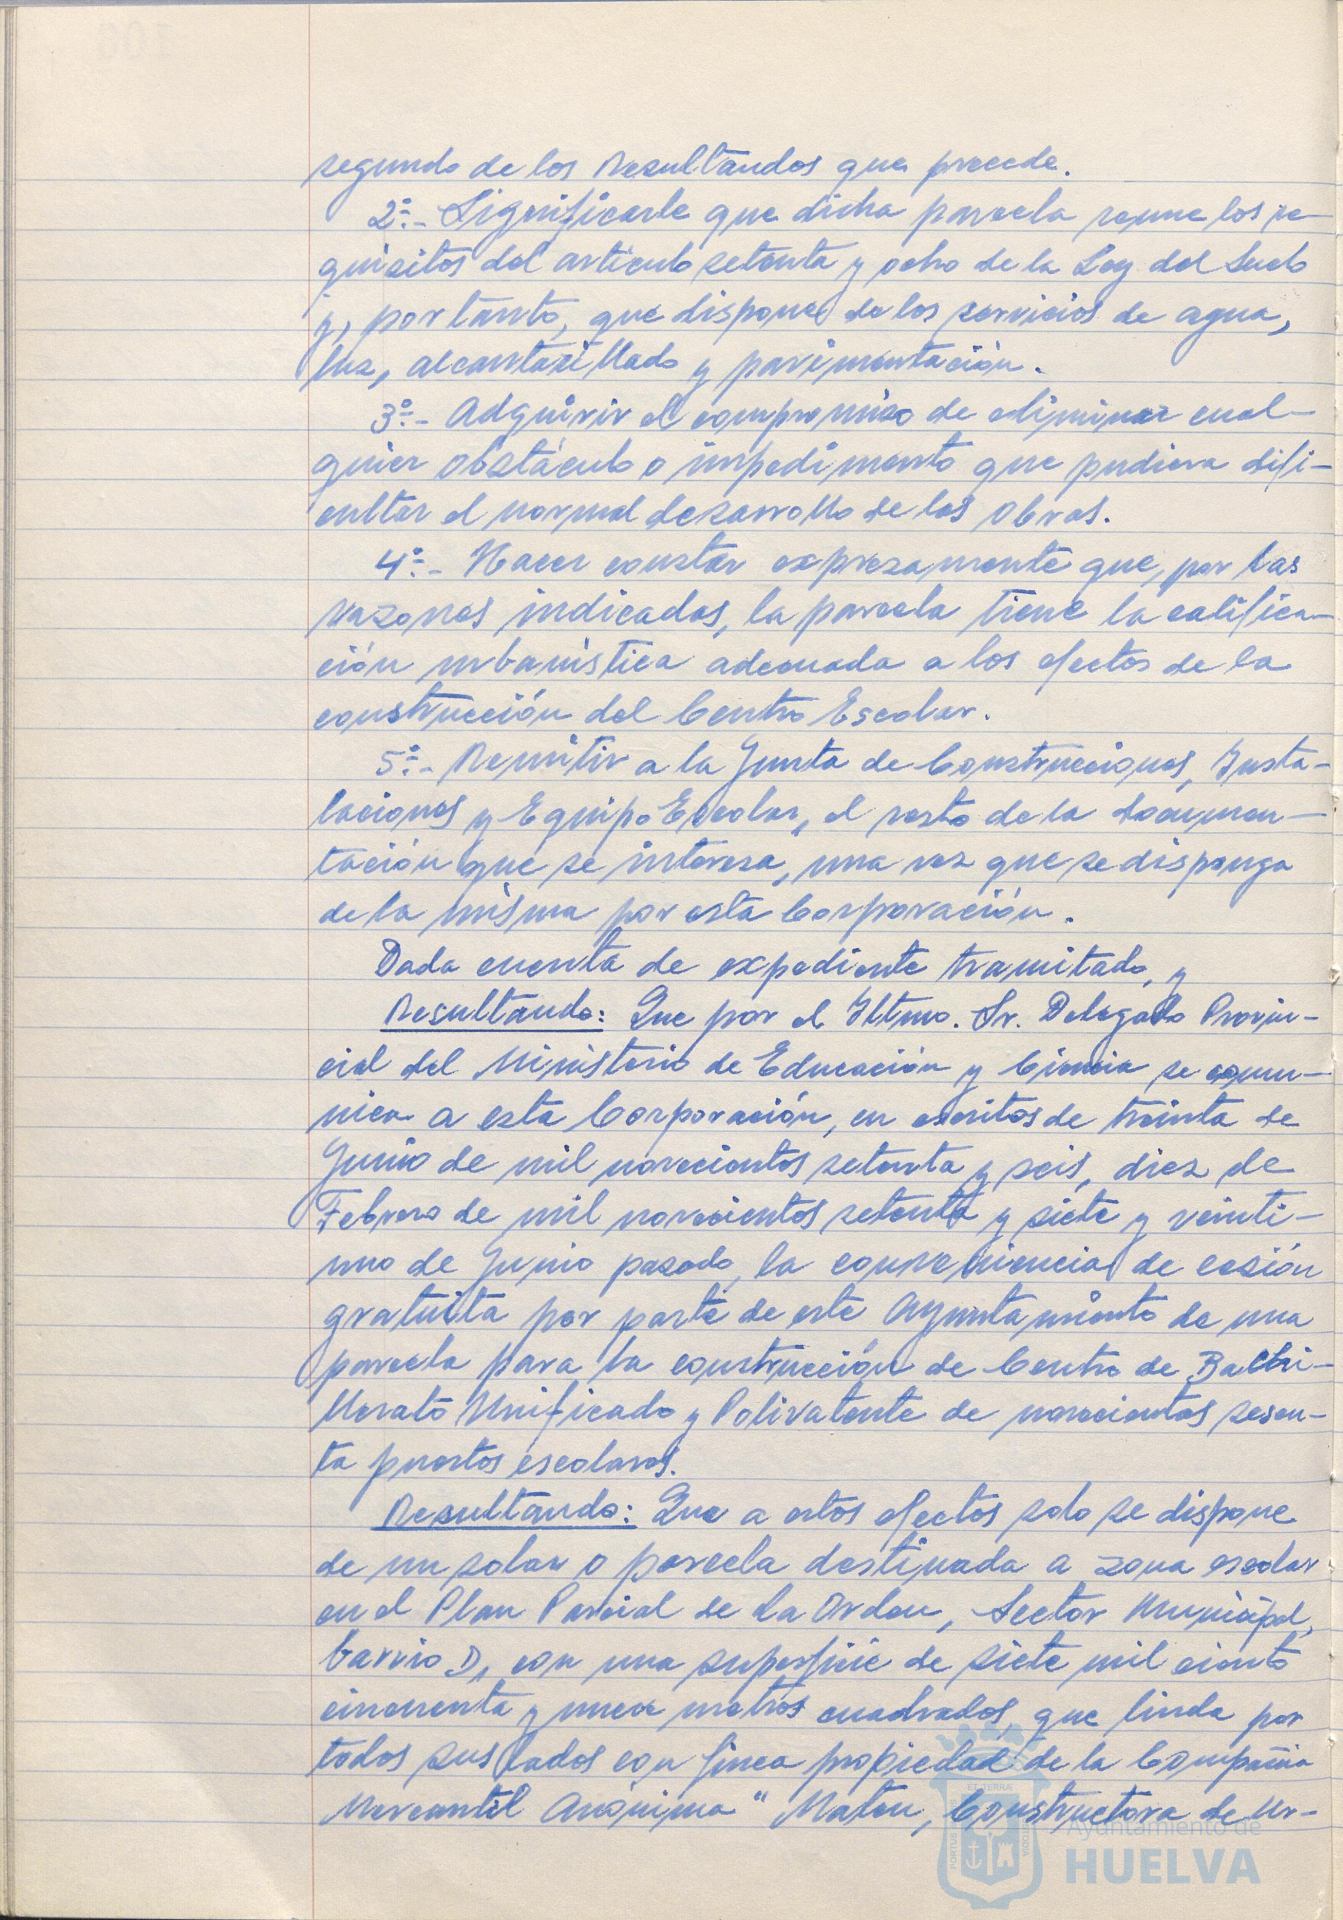 segundo de los Resultandos que precede.
2º.- Significarle que dicha parcela reune los re-
quisitos del artículo setenta y ocho de la Ley del Suelo
y, por tanto, que dispone de los servicios de agua,
luz, alcantarillado y pavimentación.
3º.- Adquirir el compromiso de eliminar cual-
quier obstáculo o impedimento que pudiera difi-
cultar el normal desarrollo de las obras.
4º.- Hacer constar expresamente que, por las
razones indicadas, la parcela tiene la califica-
ción urbanística adecuada a los efectos de la
construcción del Centro Escolar.
5º.- Remitir a la Junta de Construcciones, Insta-
laciones y Equipo Escolar, el resto de la documen-
tación que se interesa, una vez que se disponga
de la misma por esta Corporación.
Dada cuenta de expediente tramitado, y
Resultando: Que por el Iltmo. Sr. Delegado Provin-
cial del Ministerio de Educación y Ciencia se comu-
nica a esta Corporación, en escritos de treinta de
Junio de mil novecientos setenta y seis, diez de
Febrero de mil novecientos setenta y siete y veinti-
uno de Junio pasado, la conveniencia de cesión
gratuita por parte de este Ayuntamiento de una
parcela para la construcción de Centro de Bachi-
llerato Unificado y Polivalente de novecientos sesen-
ta puestos escolares.
Resultando: Que a estos efectos solo se dispone
de un solar o parcela destinada a zona escolar
en el Plan Parcial de La Orden, Sector Municipal,
barrio D, con una superficie de siete mil ciento
cincuenta y nueve metros cuadrados, que linda por
todos sus lados con finca propiedad de la Compañía
Mercantil Anónima "Maten, Constructora de Ur-
Ayuntamiento de
HUELVA